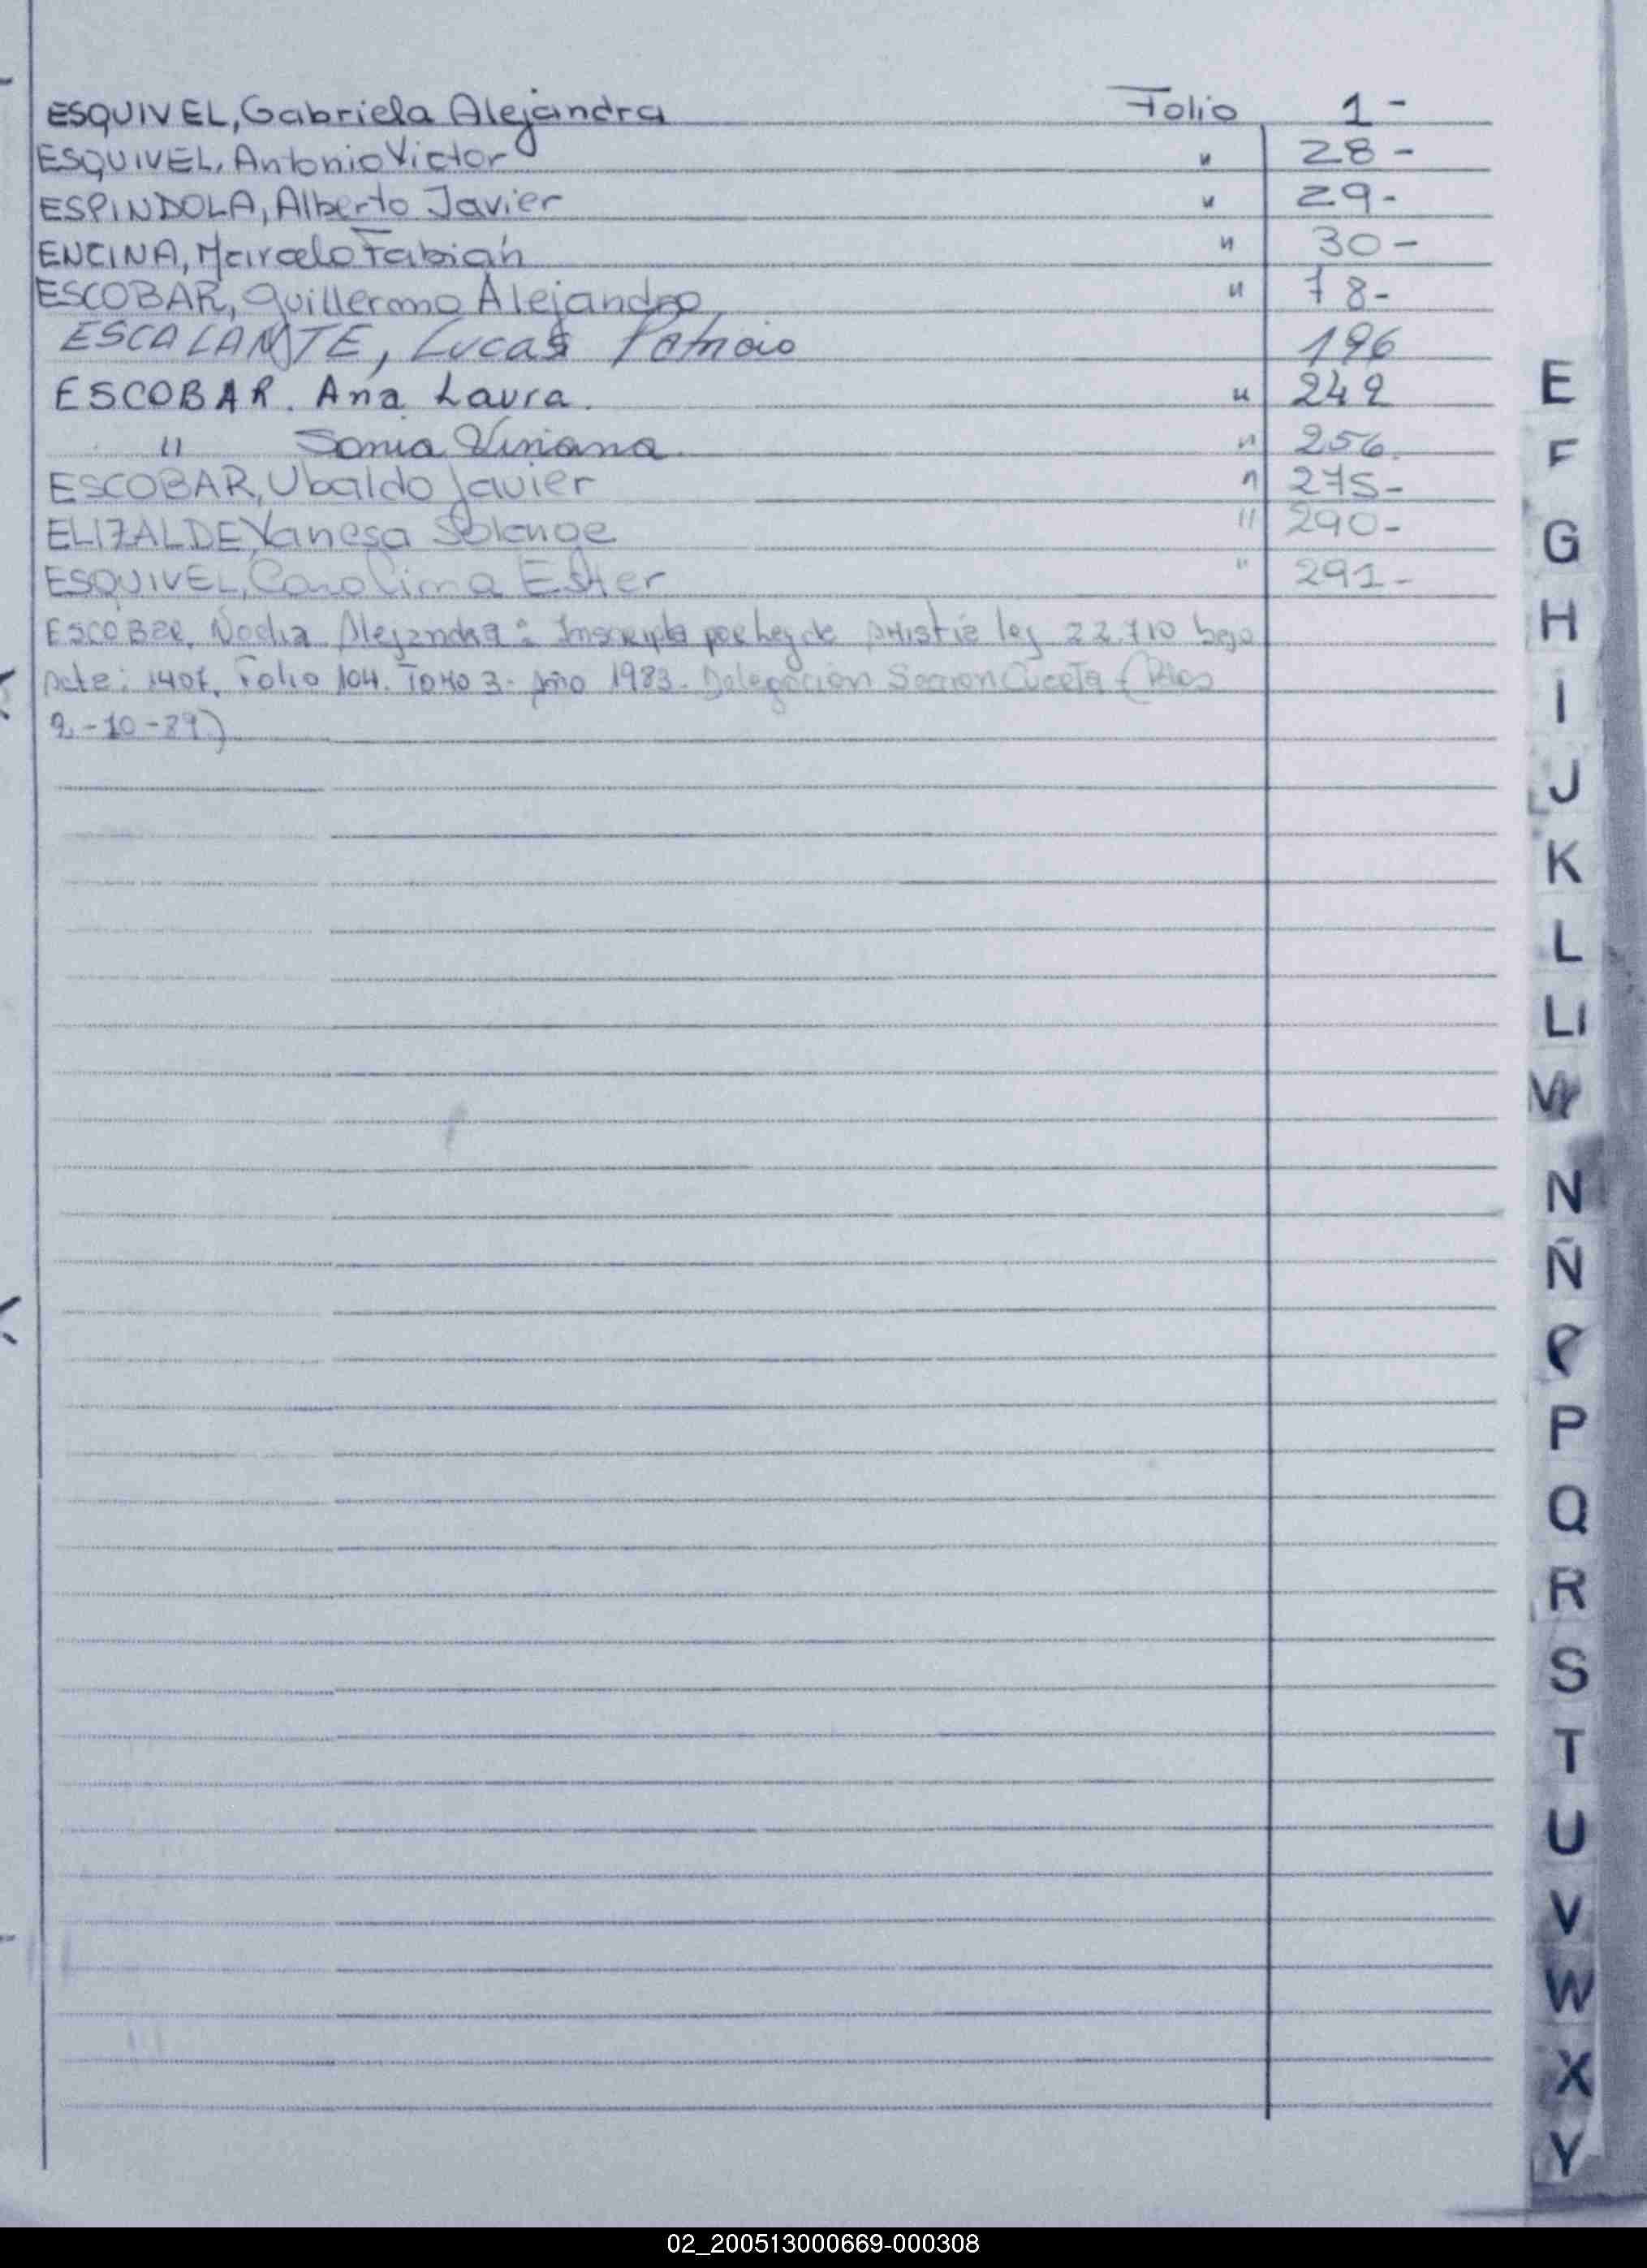 ESQUIVEL, Gabriela Alejandra Folio 1-
ESQUIVEL, Antonio Victor " 28-
ESPINDOLA, Alberto Javier " 29-
ENCINA, Marcelo Fabián " 30-
ESCOBAR, Guillermo Alejandro " 78-
ESCALANTE, Lucas Patricio 196
ESCOBAR. Ana Laura. " 242
" Sonia Viviana " 256.
ESCOBAR, Ubaldo Javier " 275-
ELIZALDE, Vanesa Solange " 290-
ESQUIVEL, Carolima Ester " 291-
ESCOBAR, Alejandra: Inscripta por Ley de ley 22.710 bajo
Acta: 1407. Folio 104. Tomo 3. Año 1983. Delegación Sección (Pdas
2-10-89)
E
F
G
H
I
J
K
L
Ll
N
Ñ
P
Q
R
S
T
U
V
W
X
Y
02_200513000669-000308